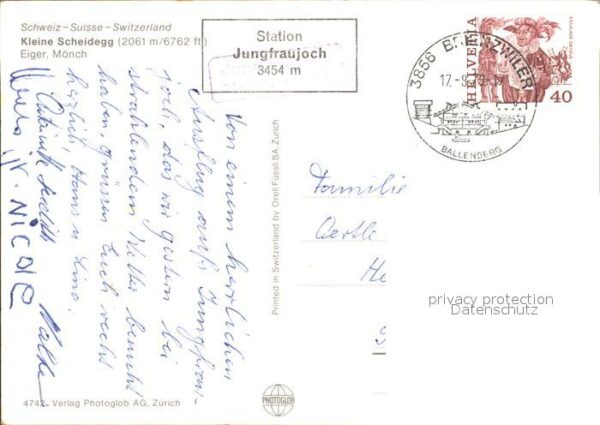 Schweiz - Suisse - Switzerland
Kleine Scheidegg (2061 m/6762 ft)
Eiger, Mönch
Station
Jungfraujoch
3454 m
3856 BRIENZWILER
17.-8.
BALLENBERG
HELVETIA
40
Von einem herrlichen
Ausflug aufs Jungfrau-
joch, das wir gestern bei
strahlendem Wetter besucht
haben grüssen Euch recht
herzlich, Hans u.
NICOLE
Printed in Switzerland by Orell Füssli SA, Zürich
Familie
Oertle
He
privacy protection
Datenschutz
PHOTOGLOB
4742 Verlag Photoglob AG, Zürich